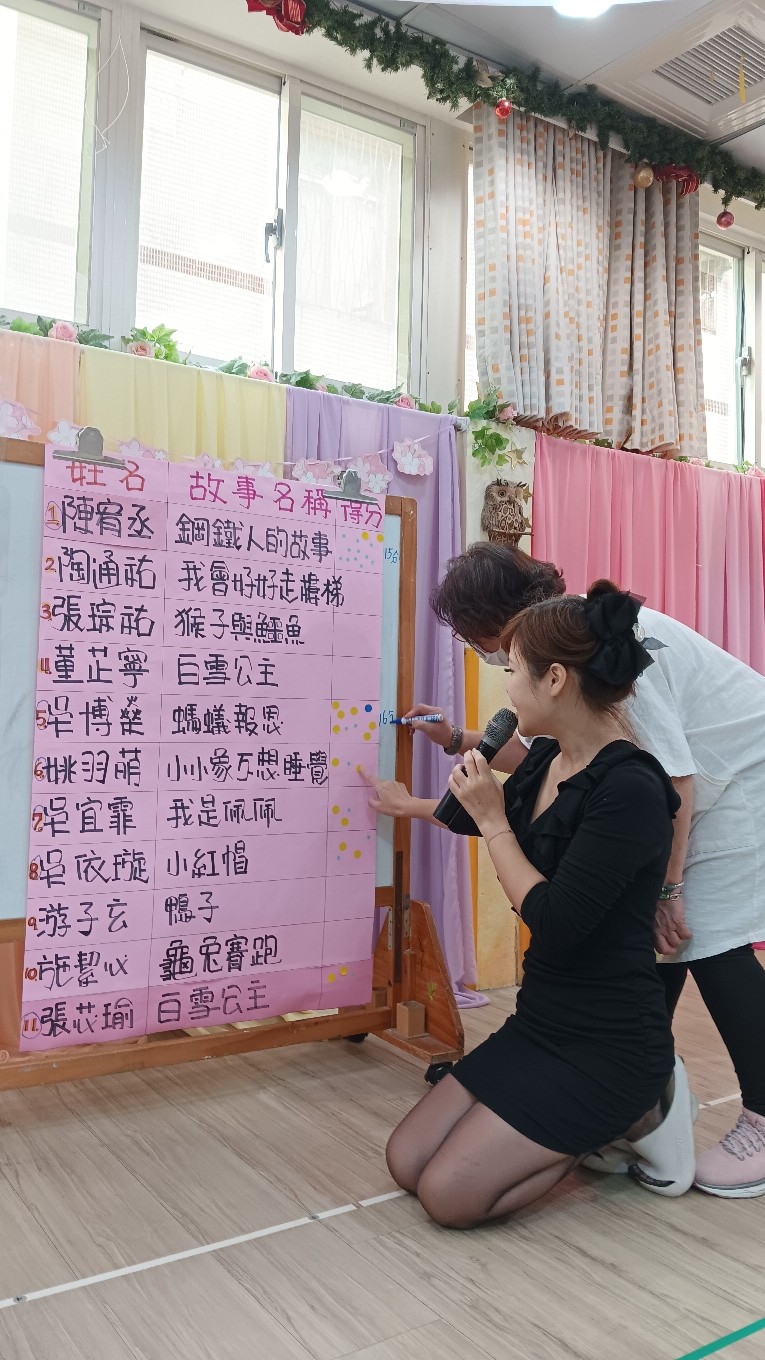 姓名 故事名稱 得分
1 陳宥丞 鋼鐵人的故事 15分
2. 陶涌祐 我會好好走樓梯
3. 張琮祐 猴子與鱷魚
4. 董芷寧 白雪公主
5 吳博燊 螞蟻報恩 16分
6 姚羽萌 小小象不想睡覺
7. 吳宜霏 我是佩佩
8. 吳依璇 小紅帽
9. 游子玄 鴨子
10. 施絜心 龜兔賽跑
11. 張芯瑜 白雪公主